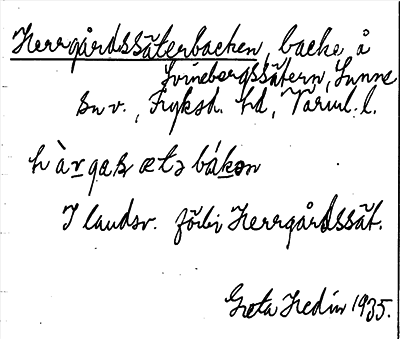 Herrgårdssäterbacken, backe å
Svinebergssätern, Sunne
sn v., Fryksd. hd, Värml. l.
hàrgaʂ ætə bákən
I landsv. förbi Herrgårdssät.
Greta Hedin 1935.